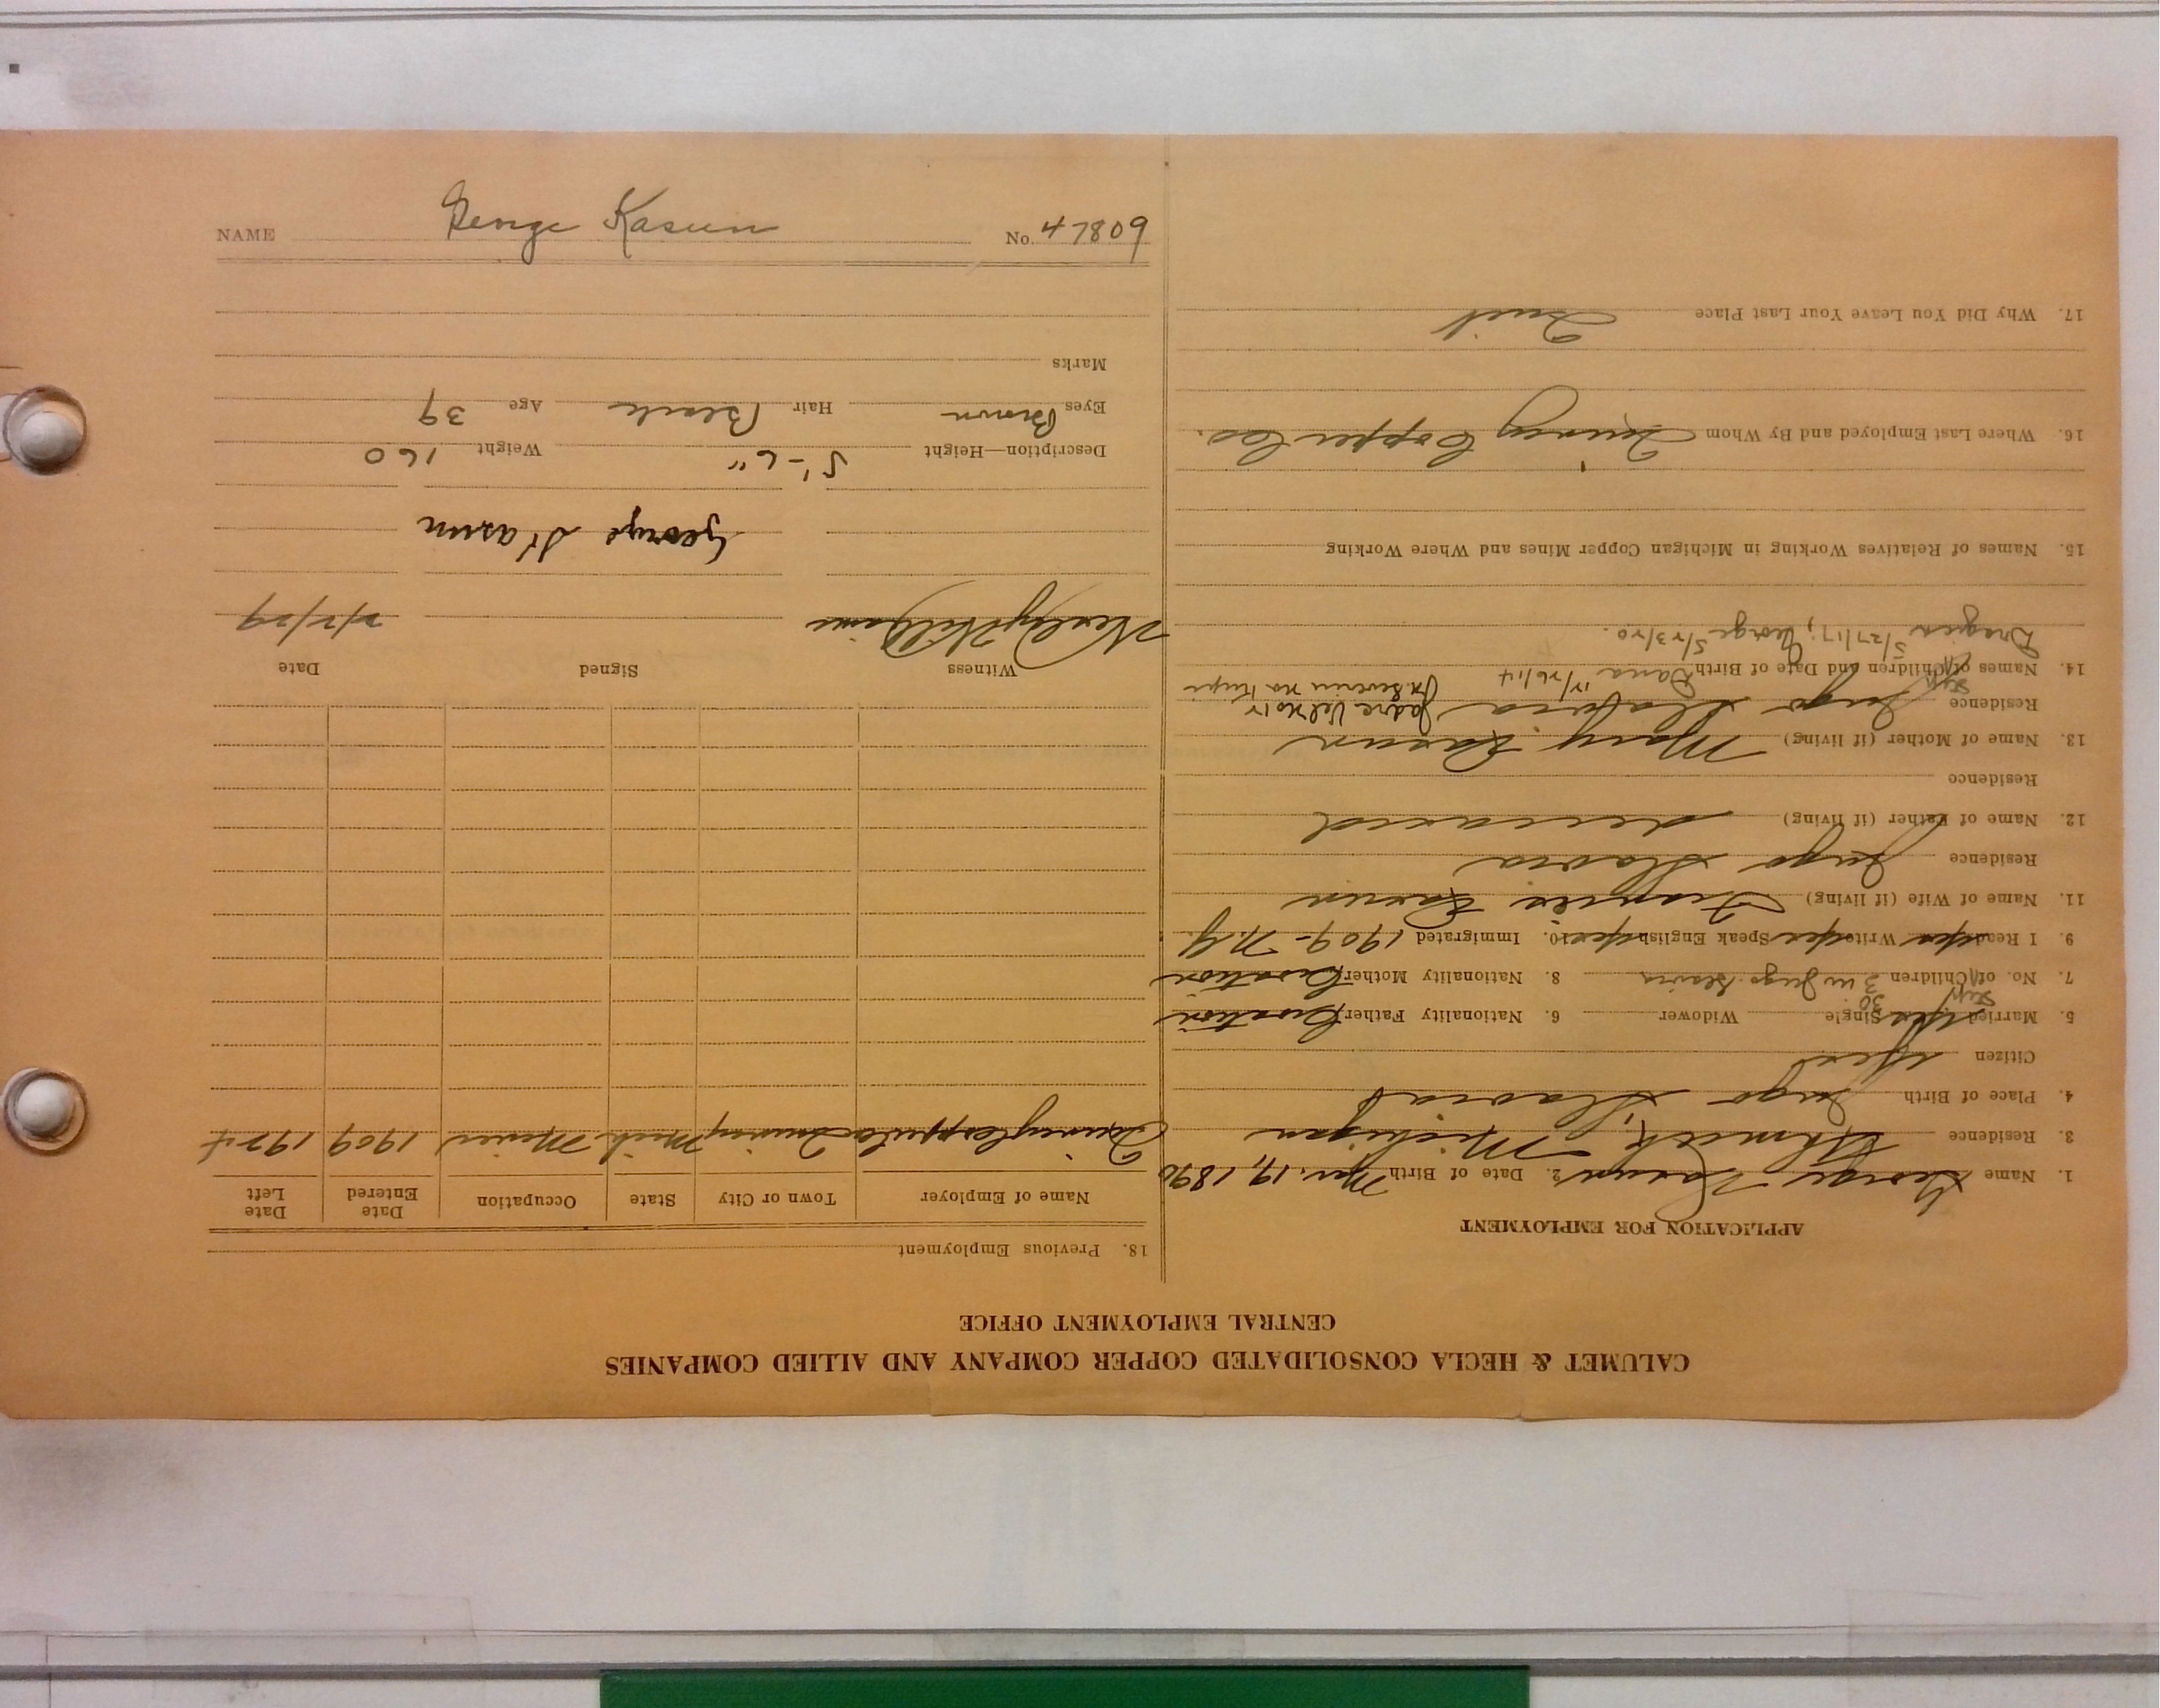 CALUMET & HECLA CONSOLIDATED COPPER COMPANY AND ALLIED COMPANIES
CENTRAL EMPLOYMENT OFFICE
APPLICATION FOR EMPLOYMENT
1. Name George Kasun 2. Date of Birth Mar. 19, 1890
3. Residence Ahmeek, Michigan
4. Place of Birth Jugo Slavia
Citizen Yes
5. Married Yes Single Widower 6. Nationality Father Croatian
30
7. No. of Children 3 in Jugo Slavia 8. Nationality Mother Croatian
9. I Read yes Write yes Speak English yes 10. Immigrated 1909 - N.Y.
11. Name of Wife (if living) Kasun
Residence Jugo Slavia
12. Name of Father (if living) deceased
Residence
13. Name of Mother (if living) Mary Kasun
Residence Jugo Slavia
14. Names of Children and Date of Birth Dana 12/26/14
Dragica 5/27/17; George 5/23/20.
15. Names of Relatives Working in Michigan Copper Mines and Where Working
16. Where Last Employed and By Whom Quincy Copper Co.
17. Why Did You Leave Your Last Place Quit
18. Previous Employment
Name of Employer Town or City State Occupation Date Entered Date Left
Quincy Copper Co Quincy Mich Mich Miner 1909 1924
Witness Signed Date
Williams 2/2/29
George Kasun
Description—Height 5'-6" Weight 160
Eyes Brown Hair Black Age 39
Marks
NAME George Kasun No. 47809